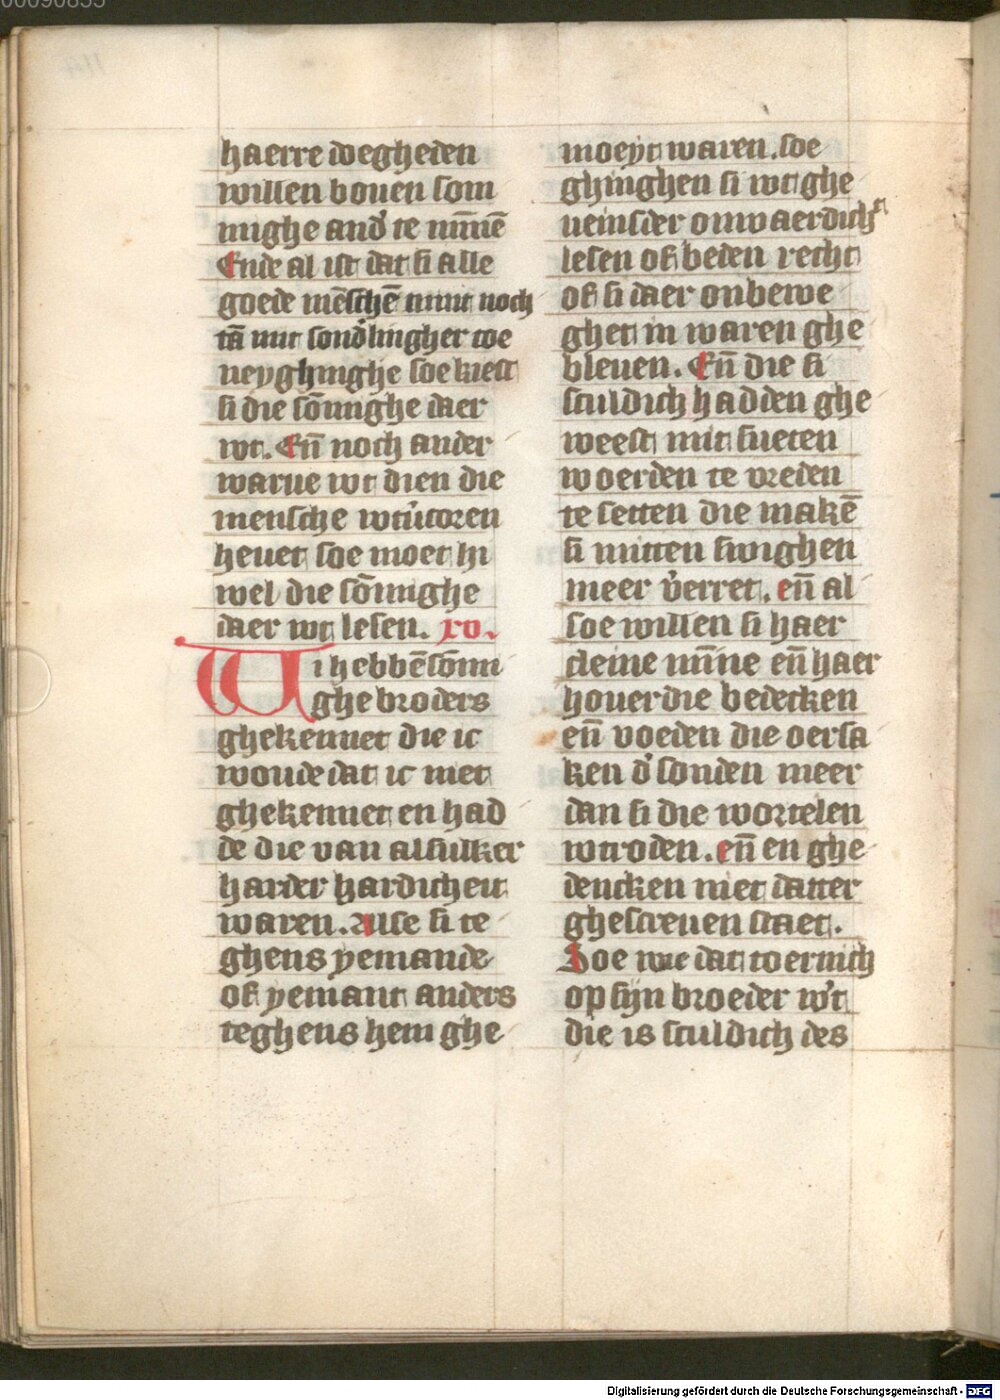 00090855
haerre doegheden
willen bouen som
mighe and̕ te mīnē
Ende al ist dat si alle
goede mēschē mint noch
tā mit sond̕lingher toe
neyghinghe soe kiest
si die sōmighe daer
wt. Eñ noch ander
warue wt dien die
mensche wtūcoren
heuet soe moet hi
wel die sōmighe
daer wt lesen. xv.
Wi hebbē sōmi
ghe broders
ghekennet die ic
woude dat ic niet
ghekennet en had
de die van alsulker
harder hardicheit
waren. Alse si te
ghens yemande
of yemant anders
teghens hem ghe
moeyt waren. soe
ghinghen si wt ghe
ueinsder onwaerdich
lesen of beden recht
of si daer onbewe
ghet in waren ghe
bleuen. Eñ die si
sculdich hadden ghe
weest mit sueten
woerden te vreden
te setten die makē
si mitten swighen
meer v̕erret. eñ al
soe willen si haer
cleine mīne eñ haer
houerdie bedecken
eñ voeden die oersa
ken d̕ sonden meer
dan si die wortelen
wtroden. eñ en ghe
dencken niet datter
ghescreuen staet.
Soe wie dat toernich
op sijn broeder w̕t
die is sculdich des
Digitalisierung gefördert durch die Deutsche Forschungsgemeinschaft - DFG